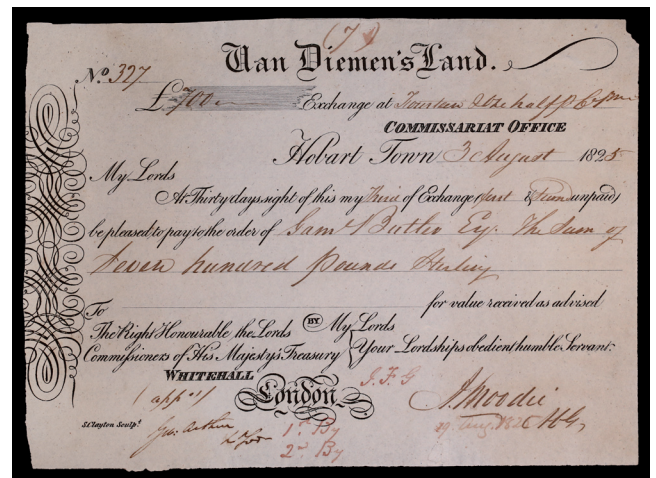 (7)
Van Diemen's Land.
No. 327
£700
Exchange at Fourteen & One half p Ct pm
COMMISSARIAT OFFICE
Hobart Town 3 August 1825
My Lords
At Thirty days sight of this my Third of Exchange (First & Second unpaid)
be pleased to pay to the order of Gam.l Butler Esq. The Sum of
Seven hundred Pounds Sterling
for value received as advised
To
The Right Honourable the Lords BY My Lords
Commissioners of His Majesty's Treasury Your Lordships obedient humble Servant:
WHITEHALL
London.
J. F. G
I appry
A Moodie
S. Clayton Sculpt.
Geo: Arthur
Lt Gov
1st. By
29 Aug. 1825
2nd. By